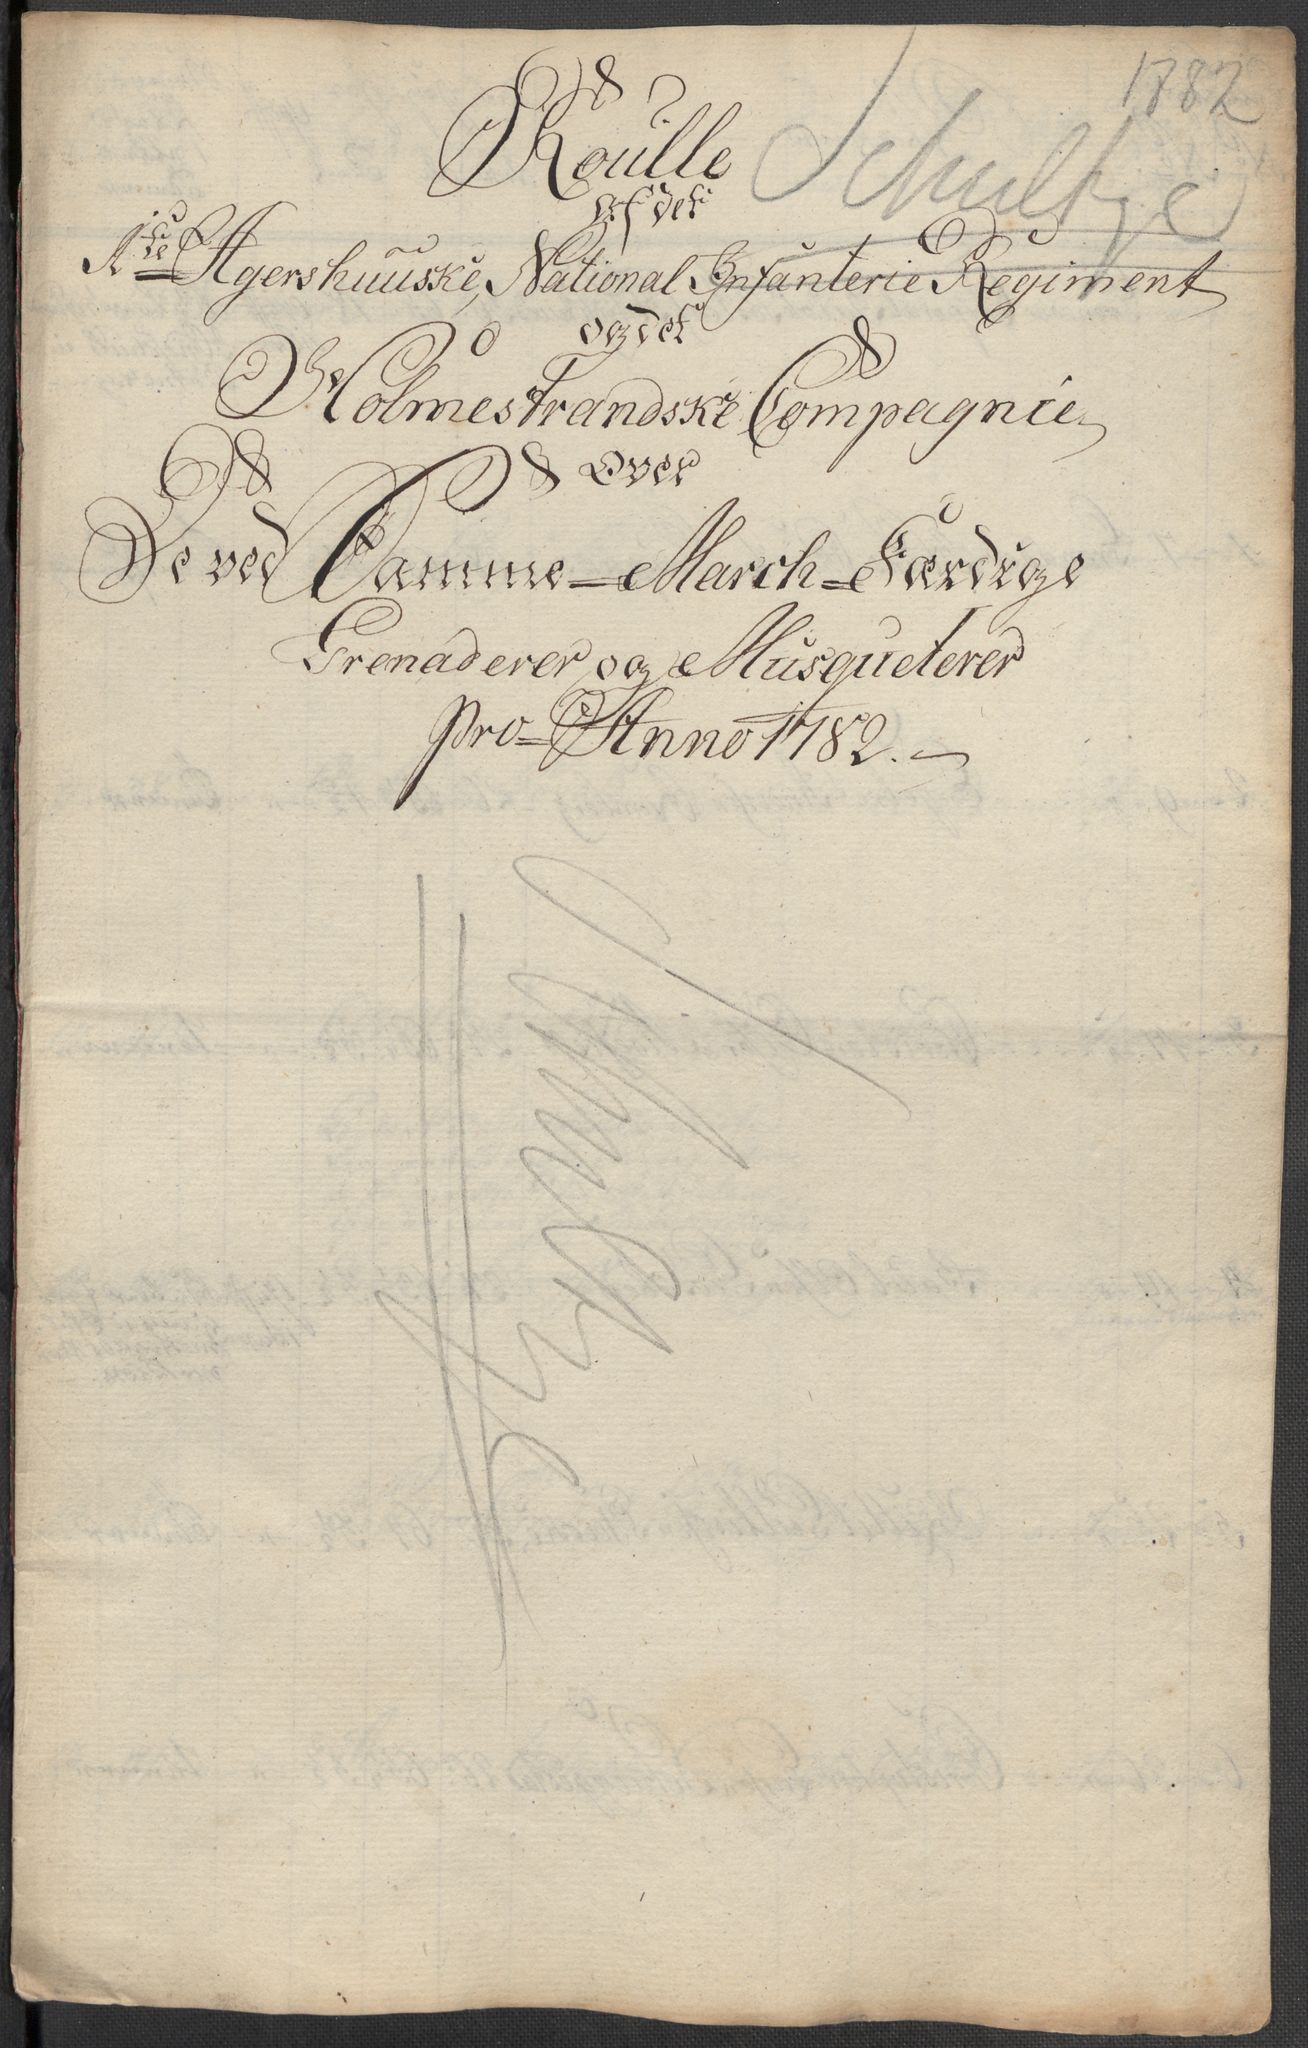 1782
Schultze
Roulle
af det
1ste Agershuuske, National Infanterie Regiment
og det
Holmestrandske Compagnie
Over
De ved Samme March Færdige
Grenaderer og Musqueterer
pro Anno 1782.
Schultze